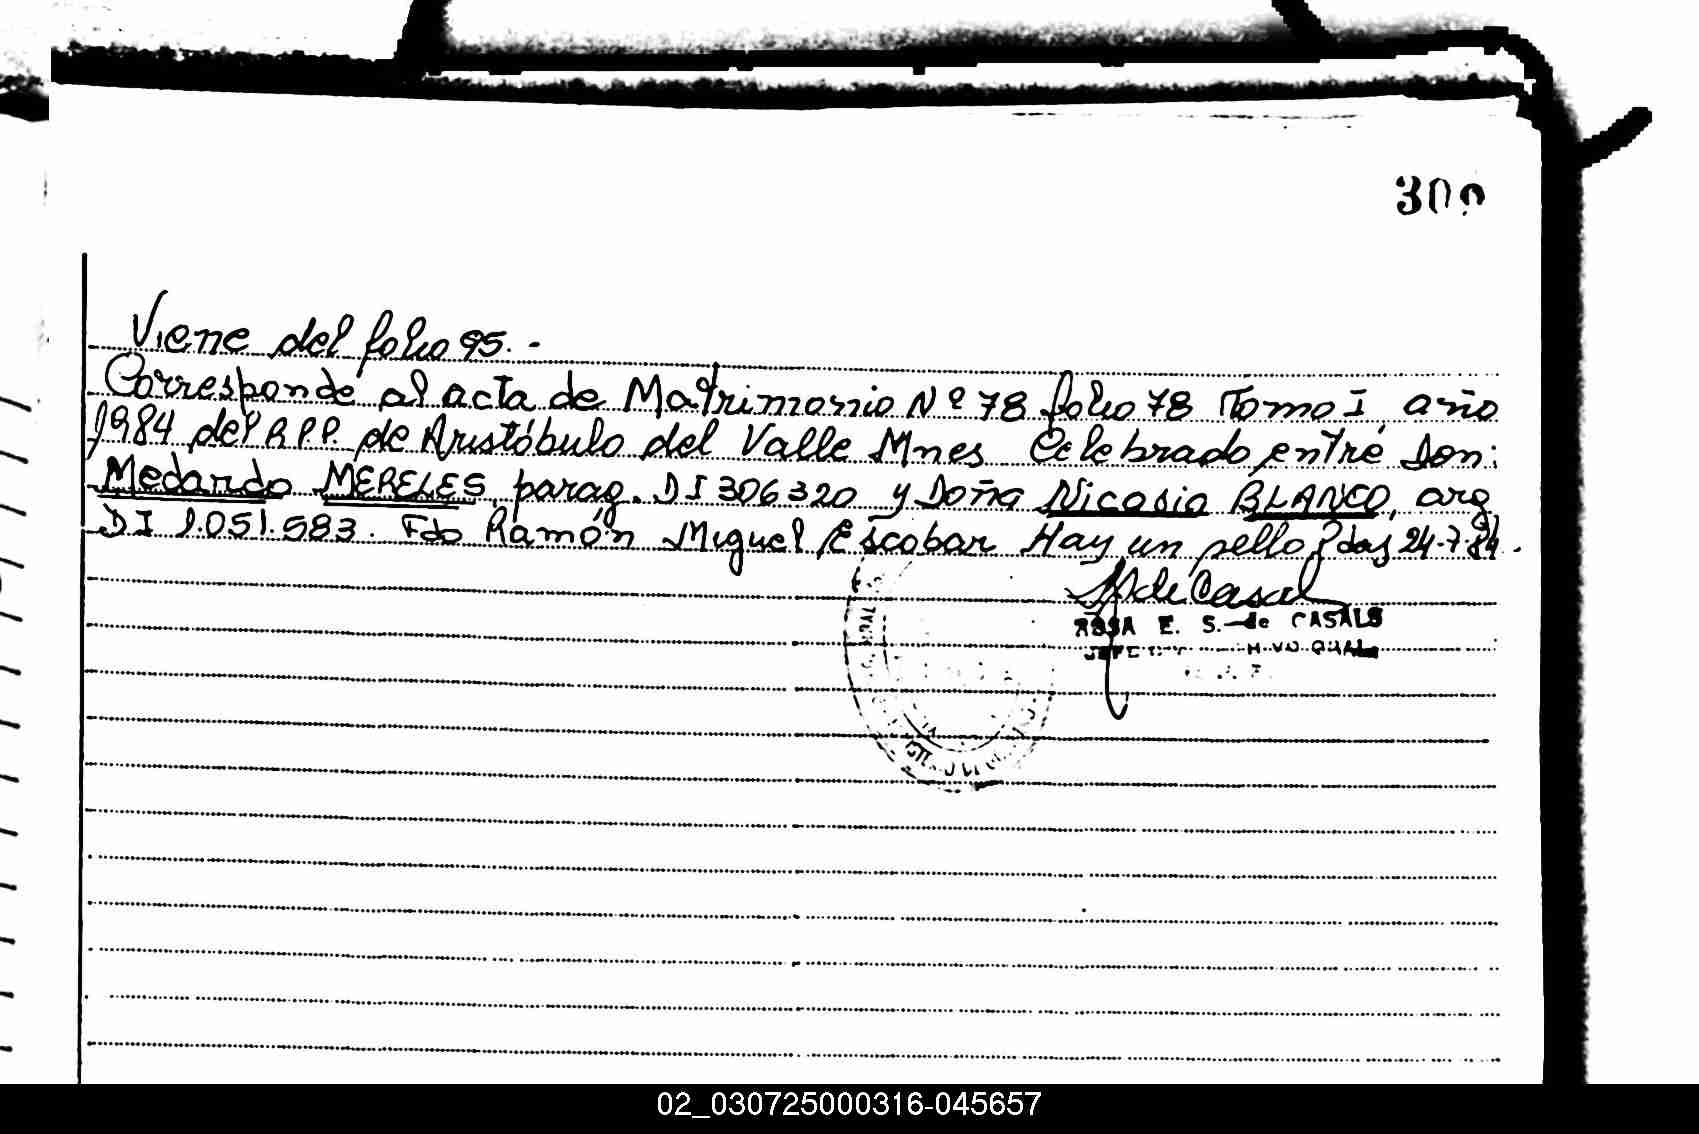 300
Viene del folio 95.-
Corresponde al acta de Matrimonio Nº 78 folio 78 Tomo I, año
1984 del R.P.P. de Aristóbulo del Valle Mnes Celebrado entre Don:
Medardo MERELES, parag. DI 306320 y Doña Nicasia BLANCO, arg
DI 1.051.583. Fdo Ramón Miguel Escobar Hay un sello Pdas 24-7-84.
de Casals
ROSA E. S. de CASALS
JEFE
02_030725000316-045657